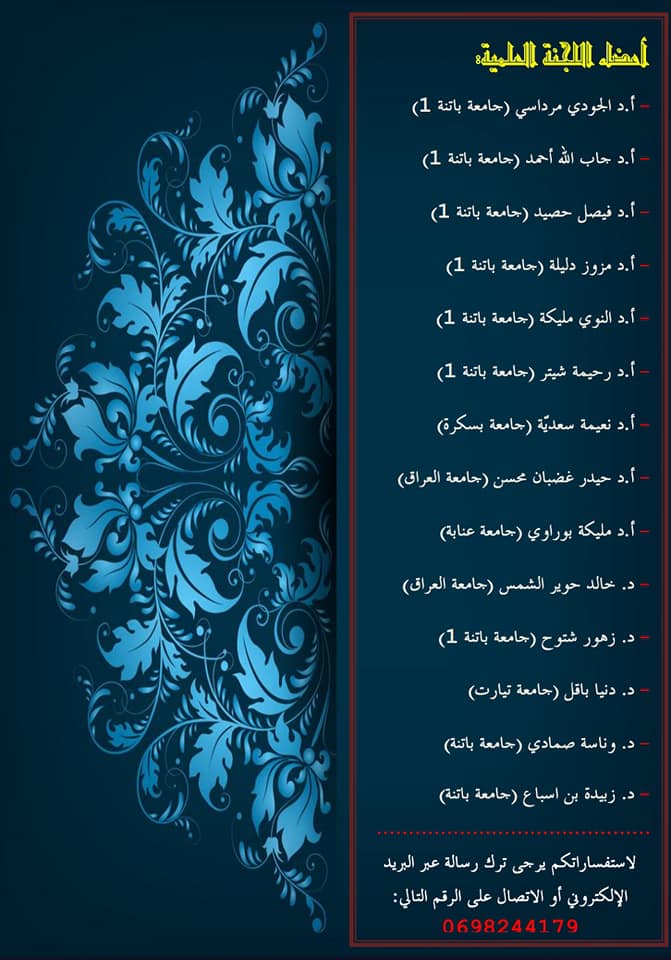 أعضاء اللجنة العلمية:
– أ.د الجودي مرداسي (جامعة باتنة 1)
– أ.د جاب الله أحمد (جامعة باتنة 1)
– أ.د فيصل حصيد (جامعة باتنة 1)
– أ.د مزوز دليلة (جامعة باتنة 1)
– أ.د النوي مليكة (جامعة باتنة 1)
– أ.د رحيمة شيتر (جامعة باتنة 1)
– أ.د نعيمة سعديّة (جامعة بسكرة)
– أ.د حيدر غضبان محسن (جامعة العراق)
– أ.د مليكة بوراوي (جامعة عنابة)
– د. خالد حوير الشمس (جامعة العراق)
– د. زهور شتوح (جامعة باتنة 1)
– د. دنيا باقل (جامعة تيارت)
– د. وناسة صمادي (جامعة باتنة)
– د. زبيدة بن اسباع (جامعة باتنة)
لاستفساراتكم يرجى ترك رسالة عبر البريد
الإلكتروني أو الاتصال على الرقم التالي:
0698244179